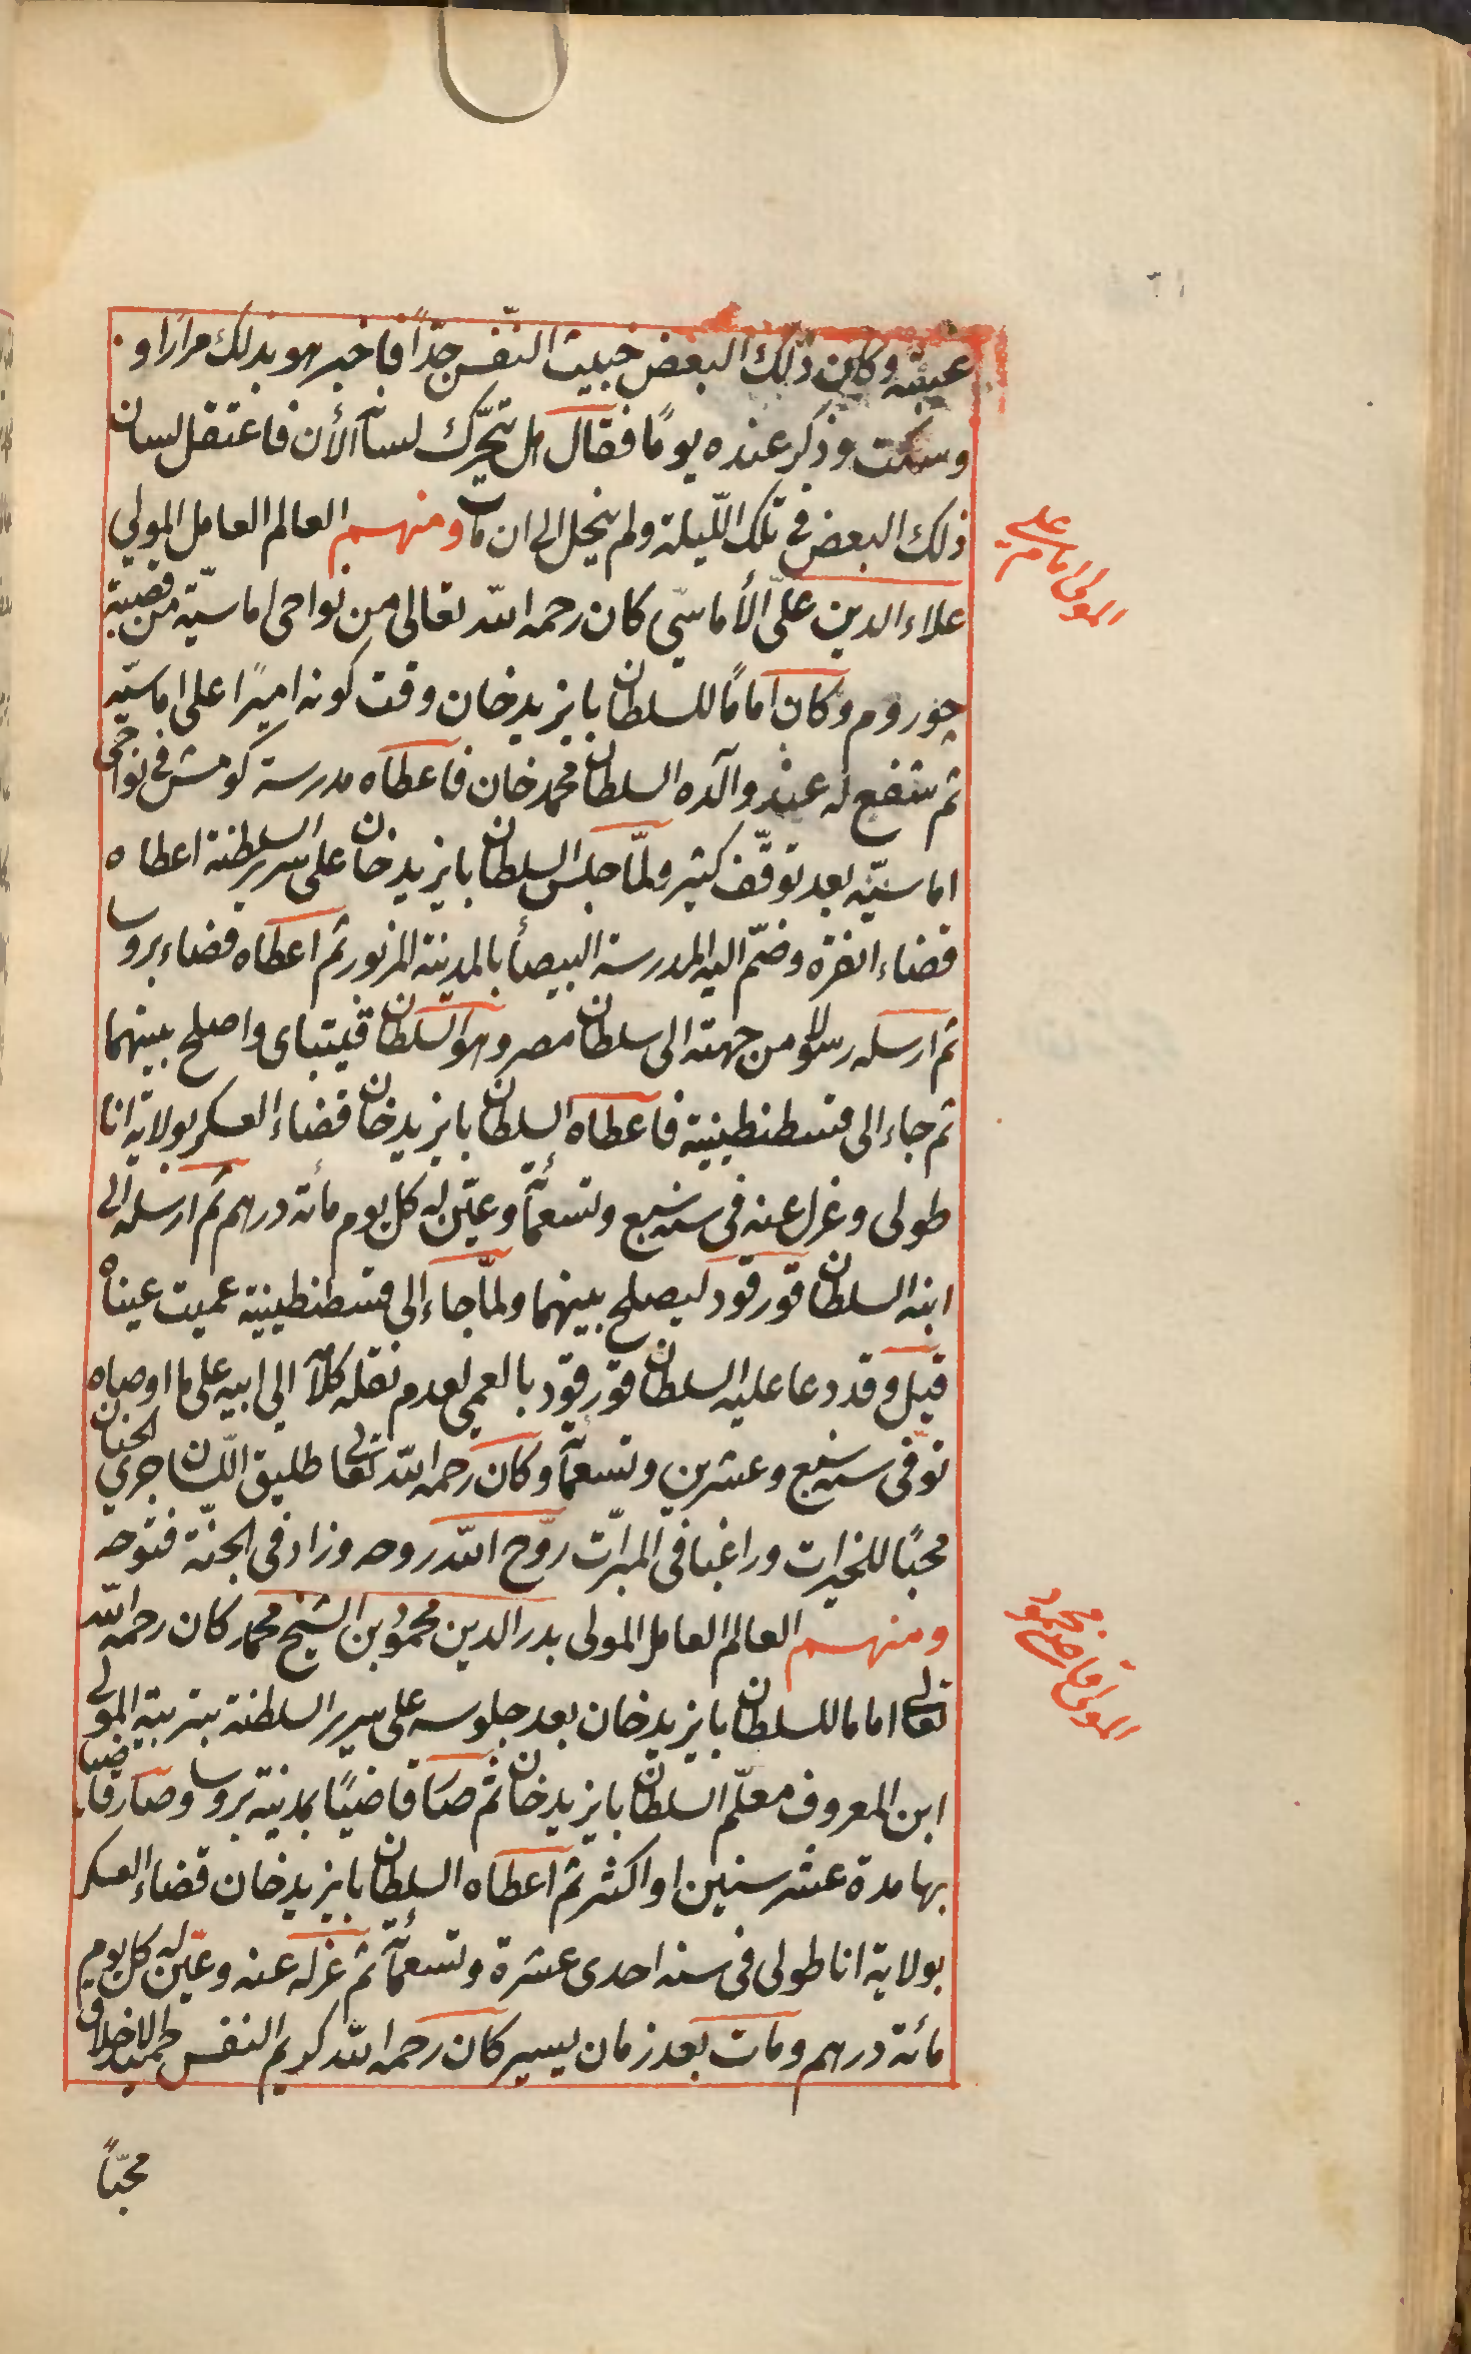 غيبته وكان ذلك البعض خبيث النّفس جدّاً فاخبر هو بذلك مرارا و
وسكت وذكر عنده يومًا فقال هل يتحرّك لسانه الأن فاعتقل لسان
ذلك البعض في تلك اللّيلة ولم ينحل الى ان مات ومنهم العالم العامل المولى
علاء الدين علىّ الأماسّي كان رحمه الله تعالى من نواحى اماسيّه من قصبة
جوروم وكان امامًا للسلطان بايزيدخان وقت كونه اميرًا على اماسيّه
ثم شفع له عند والده السلطان محمد خان فاعطاه مدرسة كومش في نواحى
اماسيّه بعد توقّف كثير ولمّا جلس السلطان بايزيدخان على سرير السلطنة اعطاه
قضاء انقره وضمّ اليه المدرسة البيضأ بالمدينة المزبور ثم اعطاه قضاء بروسا
ثم ارسله رسولا من جهته الى سلطان مصر وهو السلطان قيتباى واصلح بينهما
ثم جاء الى قسطنطينية فاعطاه السلطان بايزيدخان قضاء العسكر بولاية انا
طولى وعزل عنه فى سنه سبع وتسعمأئة وعيّن له كل يوم مأئة درهم ثم ارسله الى
ابنه السلطان قورقود ليصلح بينهما ولمّا جاء الى قسطنطينية عميت عيناه
قيل وقد دعا عليه السلطان قورقود بالعمى لعدم نقله كلامه الى ابيه على ما اوصاه
توّفى سنه سبع وعشرين وتسعمأئة وكان رحمه الله تعالى طليق اللّسان جرى الجنان
محبًا للخيرات وراغبا فى المبرّات روّح الله روحه وزاد فى الجنّة فتوحه
ومنهم العالم العامل المولى بدر الدين محمود بن الشيخ محمد كان رحمه الله
تعالى اماما للسلطان بايزيدخان بعد جلوسه على سرير السلطنة بتربية المولى
ابن المعروف معلّم السلطان بايزيدخان ثم صار قاضيًا بمدينة بروسا وصار قاضيا
بها مدة عشر سنين او اكثر ثم اعطاه السلطان بايزيدخان قضاء العسكر
بولاية اناطولى فى سنه احدى عشرة وتسعمأئة ثم عزله عنه وعيّن له كل يوم
مأئة درهم ومات بعد زمان يسير كان رحمه الله كريم النفس حميد الاخلاق
محبّاً
المولى اماسى على
المولى قاضى محمود